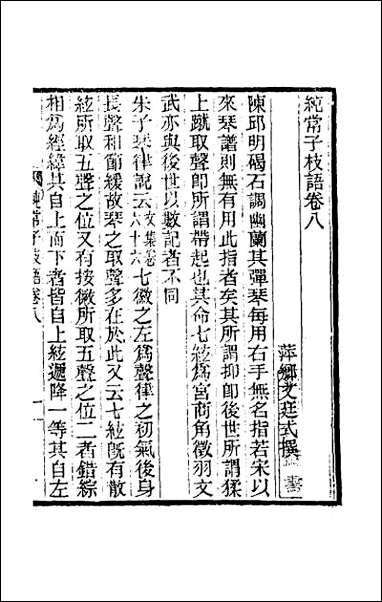 純常子枝語卷八
萍鄉文廷式撰
陳邱明碣石調幽蘭其彈琴每用右手無名指若宋以
來琴譜則無有用此指者矣其所謂抑即後世所謂猱
上蹴取聲即所謂帶起也其命七絃爲宮商角徵羽文
武亦與後世以數記者不同
朱子琴律說云文集卷六十六七徽之左爲聲律之初氣後身
長聲和節緩故琴之取聲多在於此又云七絃既有散
絃所取五聲之位又有按徽所取五聲之位二者錯綜
相爲經緯其自上而下者皆自上絃遞降一等其自左
純常子枝語卷八
一